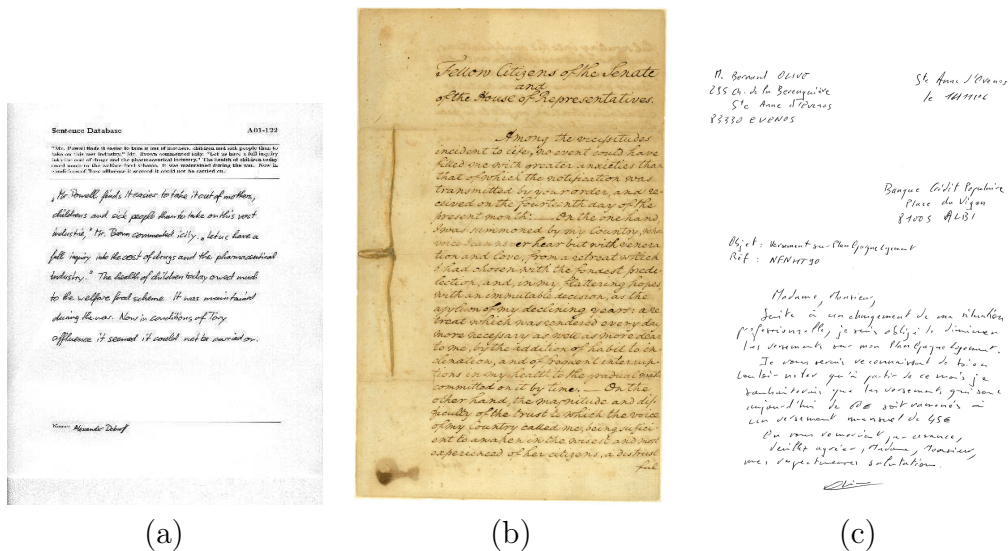 Sentence Database A01-122
"Mr. Powell finds it easier to take it out of mothers, children and sick people than to
take on this vast industry," Mr. Brown commented icily. "Let us have a full inquiry
into the cost of drugs and the pharmaceutical industry." The health of children today
owed much to the welfare food scheme. It was maintained during the war. Now in
conditions of Tory affluence it seemed it could not be carried on.
„Mr. Powell finds it easier to take it out of mothers,
childrens and sick people than to take on this vast
industrie," Mr. Brown commented icilly. „Let us have a
full inquiry into the cost of drugs and the pharmaceutical
industry." The health of children today owed much
to the welfare food scheme. It was maintained
during the war. Now in conditions of Tory
affluence it seemed it could not be carried on.
Name:
(a)
Fellow Citizens of the Senate
and
of the House of Representatives.
Among the vicissitudes
incident to life, no event could have
filled me with greater anxieties than
that of which the notification was
transmitted by your order, and re-
ceived on the fourteenth day of the
present month: — On the one hand
I was summoned by my Country, whose
voice I can never hear but with venera-
tion and love, from a retreat which
I had chosen with the fondest prede-
lection, and, in my flattering hopes,
with an immutable decision, as the
asylum of my declining years: a re-
treat which was rendered every day
more necessary as well as more dear
to me, by the addition of habit to in-
clination, and of frequent interrup-
tions in my health to the gradual waste
committed on it by time. — On the
other hand, the magnitude and dif-
ficulty of the trust to which the voice
of my Country called me, being suffici-
ent to awaken in the wisest and most
experienced of her citizens, a distrust-
ful
(b)
M. Bernard OLIVE
235 Ch. de la Berenguière
Ste Anne d'Evenos
83330 EVENOS
Ste Anne d'Evenos
le
Banque Crédit Populaire
Place du Vigan
81005 ALBI
Objet : Versement sur Plan Epargne Logement
Réf : NFNHT90
Madame, Monsieur,
Suite à un changement de ma situation
professionnelle, je suis obligé de diminuer
les versements sur mon Plan Epargne Logement.
Je vous serais reconnaissant de bien
vouloir noter qu'à partir de ce mois je
souhaiterais que les versements qui sont
aujourd'hui de soit ramenés à
un versement mensuel de 45€
En vous remerciant par avance,
Veuillez agréer, Madame, Monsieur,
mes respectueuses salutations.
(c)